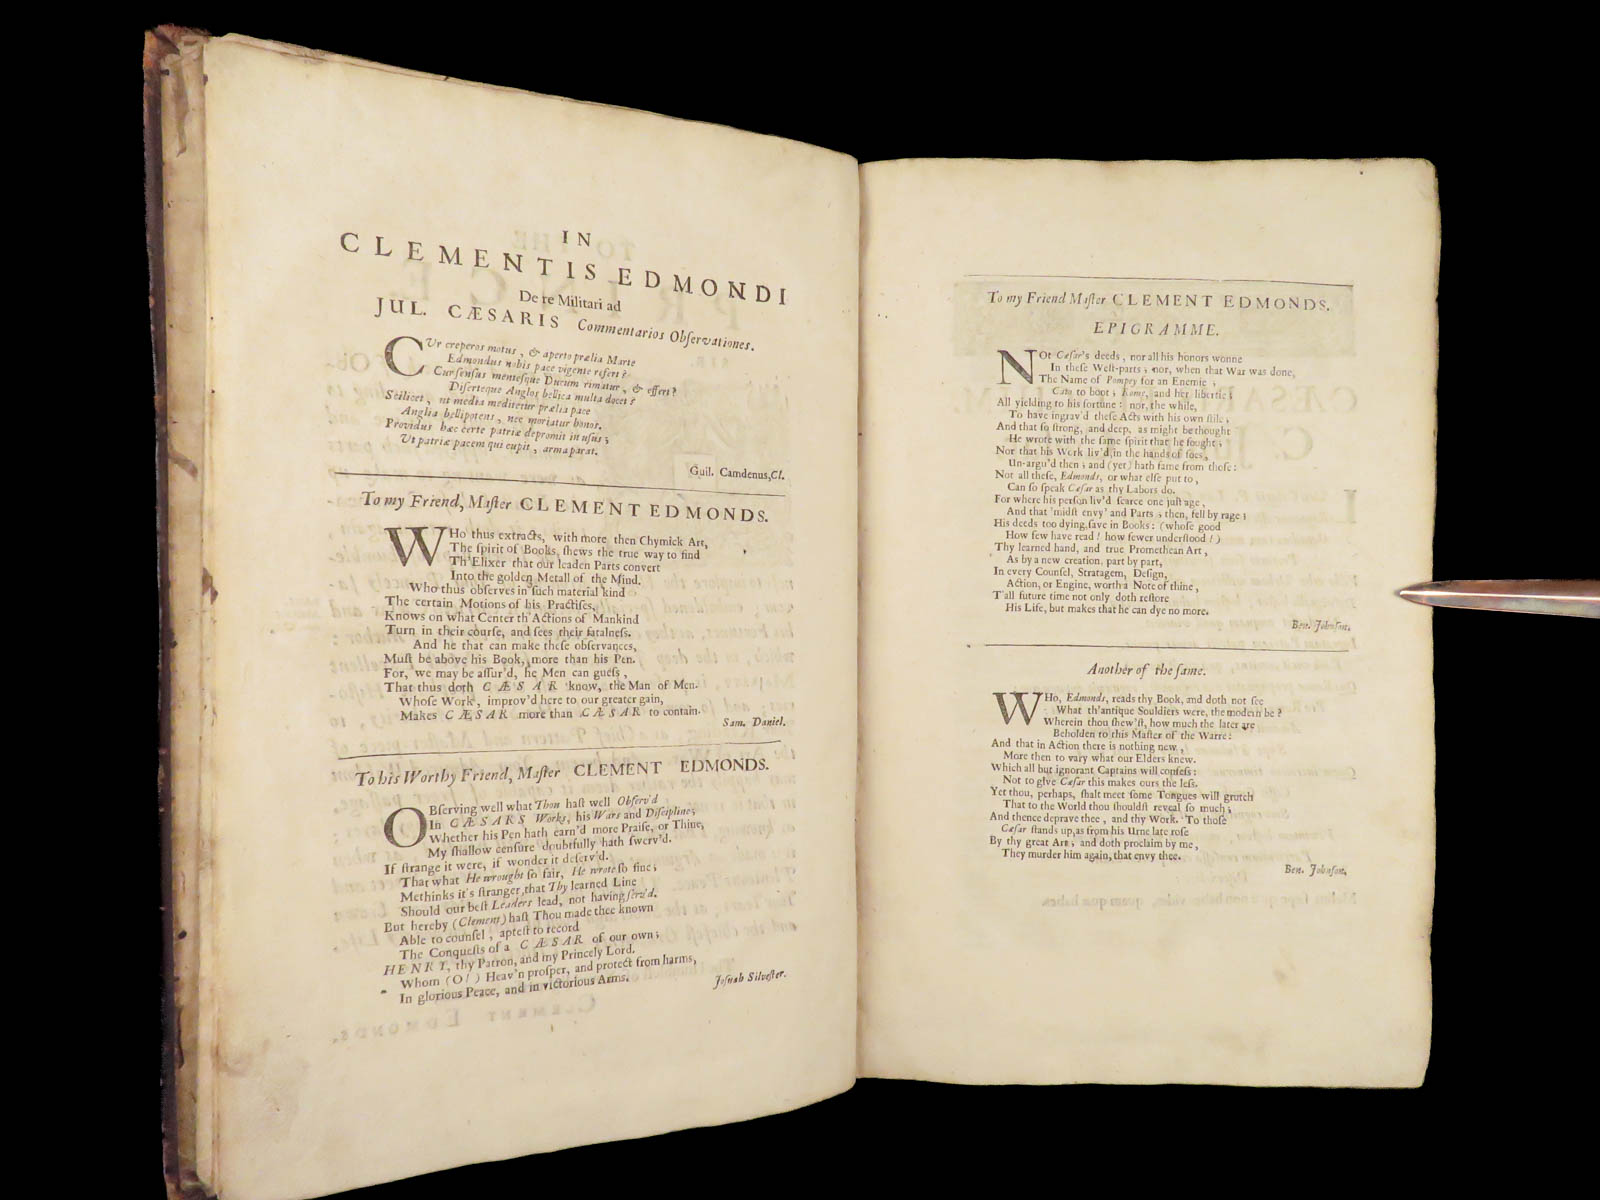 IN
CLEMENTIS EDMONDI
De re Militari ad
JUL. CÆSARIS Commentarios Obſervationes.
CUr creperos motus, & aperto prælia Marte
Edmondus nobis pace vigente refert?
Cur ſenſus menteſque Ducum rimatur, & effert?
Diſerteque Anglos bellica multa docet?
Scilicet, ut media meditetur prælia pace
Anglia bellipotens, nec moriatur honos.
Providus hæc certe patriæ depromit in uſus;
Ut patriæ pacem qui cupit, arma parat.
Guil. Camdenus, Cl.
To my Friend, Maſter CLEMENT EDMONDS.
WHo thus extracts, with more then Chymick Art,
The ſpirit of Books, ſhews the true way to find
Th'Elixer that our leaden Parts convert
Into the golden Metall of the Mind.
Who thus obſerves in ſuch material kind
The certain Motions of his Practiſes,
Knows on what Center th'Actions of Mankind
Turn in their courſe, and ſees their fatalneſs.
And he that can make theſe obſervances,
Muſt be above his Book, more than his Pen.
For, we may be aſſur'd, he Men can gueſs,
That thus doth CÆSAR know, the Man of Men.
Whoſe Work, improv'd here to our greater gain,
Makes CÆSAR more than CÆSAR to contain.
Sam. Daniel.
To his Worthy Friend, Maſter CLEMENT EDMONDS.
OBſerving well what Thou haſt well Obſerv'd
In CÆSARS Works, his Wars and Diſcipline;
Whether his Pen hath earn'd more Praiſe, or Thine,
My ſhallow cenſure doubtfully hath ſwerv'd.
If ſtrange it were, if wonder it deſerv'd.
That what He wrought ſo fair, He wrote ſo fine;
Methinks it's ſtranger, that Thy learned Line
Should our beſt Leaders lead, not having ſerv'd.
But hereby (Clement) haſt Thou made thee known
Able to counſel, apteſt to record
The Conqueſts of a CÆSAR of our own;
HENRY, thy Patron, and my Princely Lord.
Whom (O!) Heav'n proſper, and protect from harms,
In glorious Peace, and in victorious Arms.
Joſuah Silveſter.
To my Friend Maſter CLEMENT EDMONDS.
EPIGRAMME.
NOt Cæſar's deeds, nor all his honors wonne
In theſe Weſt-parts; nor, when that War was done,
The Name of Pompey for an Enemie;
Cato to boot; Rome, and her libertie;
All yielding to his fortune: nor, the while,
To have ingrav'd theſe Acts with his own ſtile;
And that ſo ſtrong, and deep, as might be thought
He wrote with the ſame ſpirit that he fought;
Nor that his Work liv'd in the hands of foes,
Un-argu'd then; and (yet) hath fame from thoſe:
Not all theſe, Edmonds, or what elſe put to,
Can ſo ſpeak Cæſar as thy Labors do.
For where his perſon liv'd ſcarce one juſt age,
And that 'midſt envy' and Parts; then, fell by rage;
His deeds too dying, ſave in Books: (whoſe good
How few have read! how fewer underſtood!)
Thy learned hand, and true Promethean Art,
As by a new creation, part by part,
In every Counſel, Stratagem, Deſign,
Action, or Engine, worth a Note of thine,
T'all future time not only doth reſtore
His Life, but makes that he can dye no more.
Ben. Johnſon.
Another of the ſame.
WHo, Edmonds, reads thy Book, and doth not ſee
What th'antique Souldiers were, the modern be?
Wherein thou ſhew'ſt, how much the later are
Beholden to this Maſter of the Warre:
And that in Action there is nothing new,
More then to vary what our Elders knew.
Which all but ignorant Captains will confeſs:
Not to give Cæſar this makes ours the leſs.
Yet thou, perhaps, ſhalt meet ſome Tongues will grutch
That to the World thou ſhouldſt reveal ſo much;
And thence deprave thee, and thy Work. To thoſe
Cæſar ſtands up, as from his Urne late roſe
By thy great Art; and doth proclaim by me,
They murder him again, that envy thee.
Ben. Johnſon.